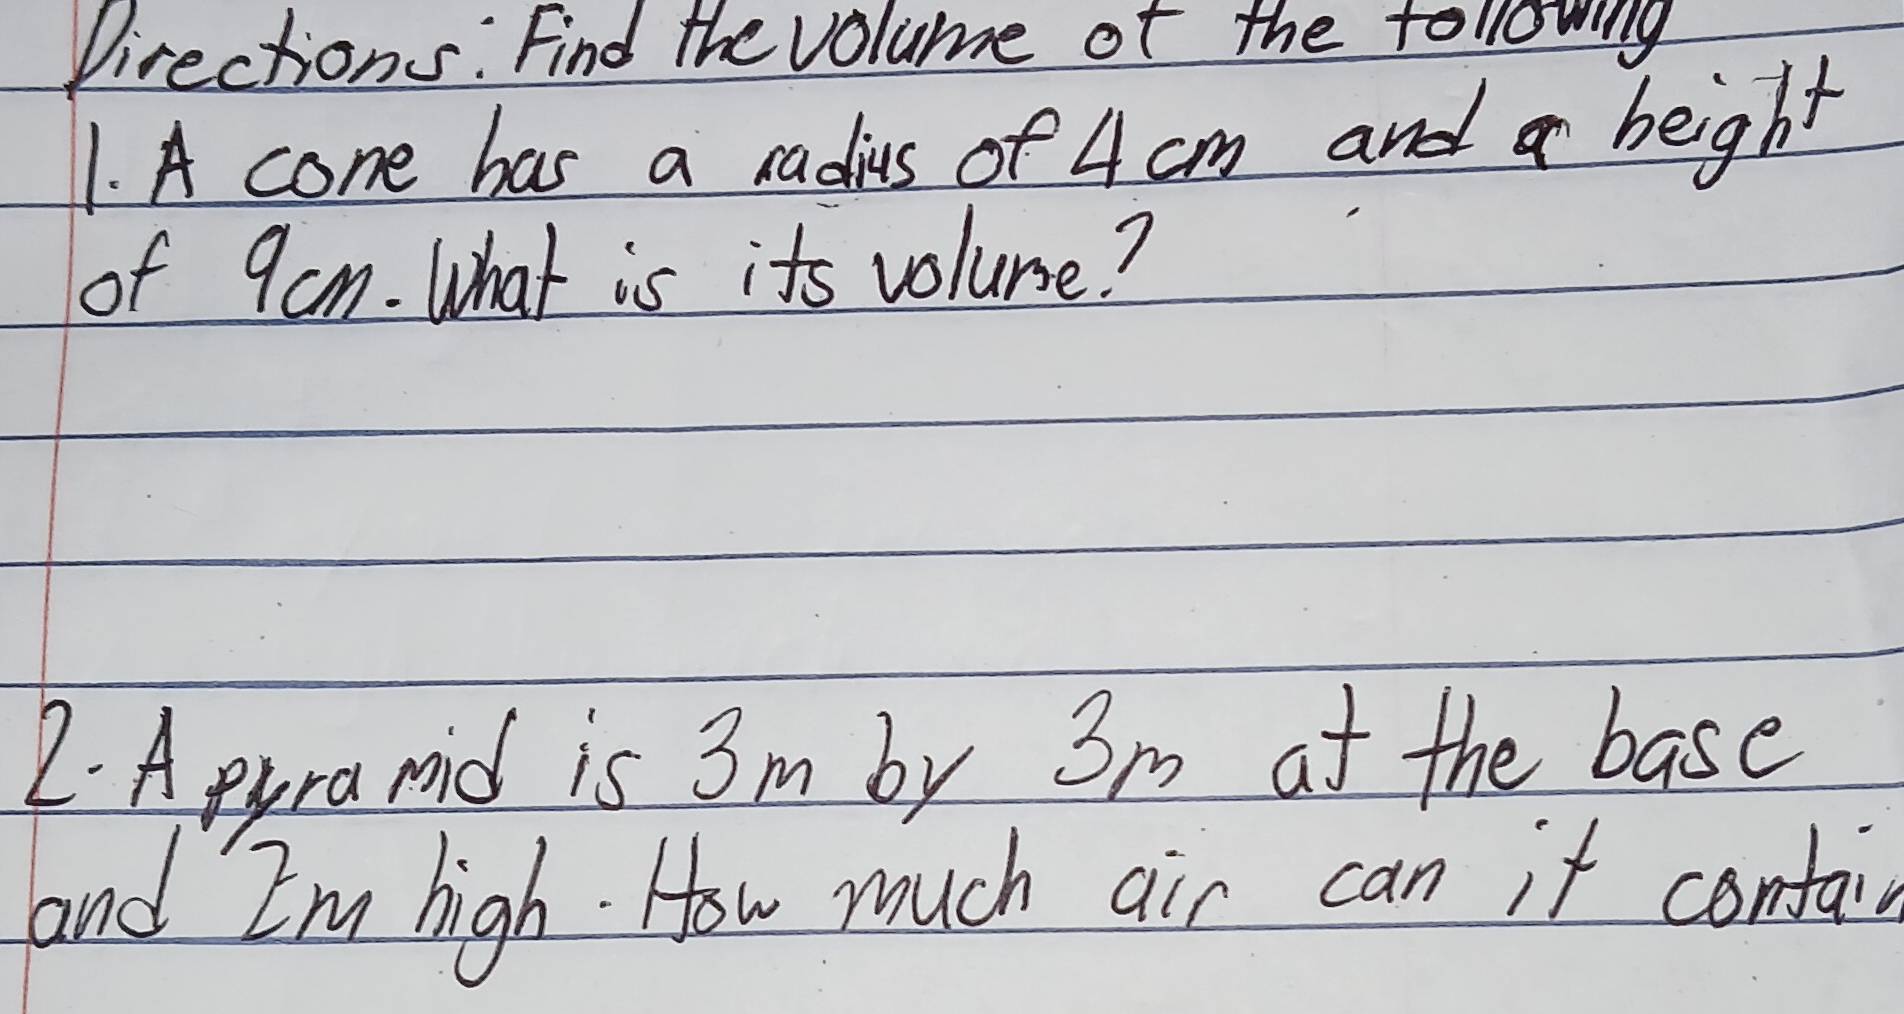 Directions: Find the volume of the following
1. A cone has a radius of 4 cm and a height
of 9cm. What is its volume?
2. A pyramid is 3m by 3m at the base
and 2m high. How much air can it contain